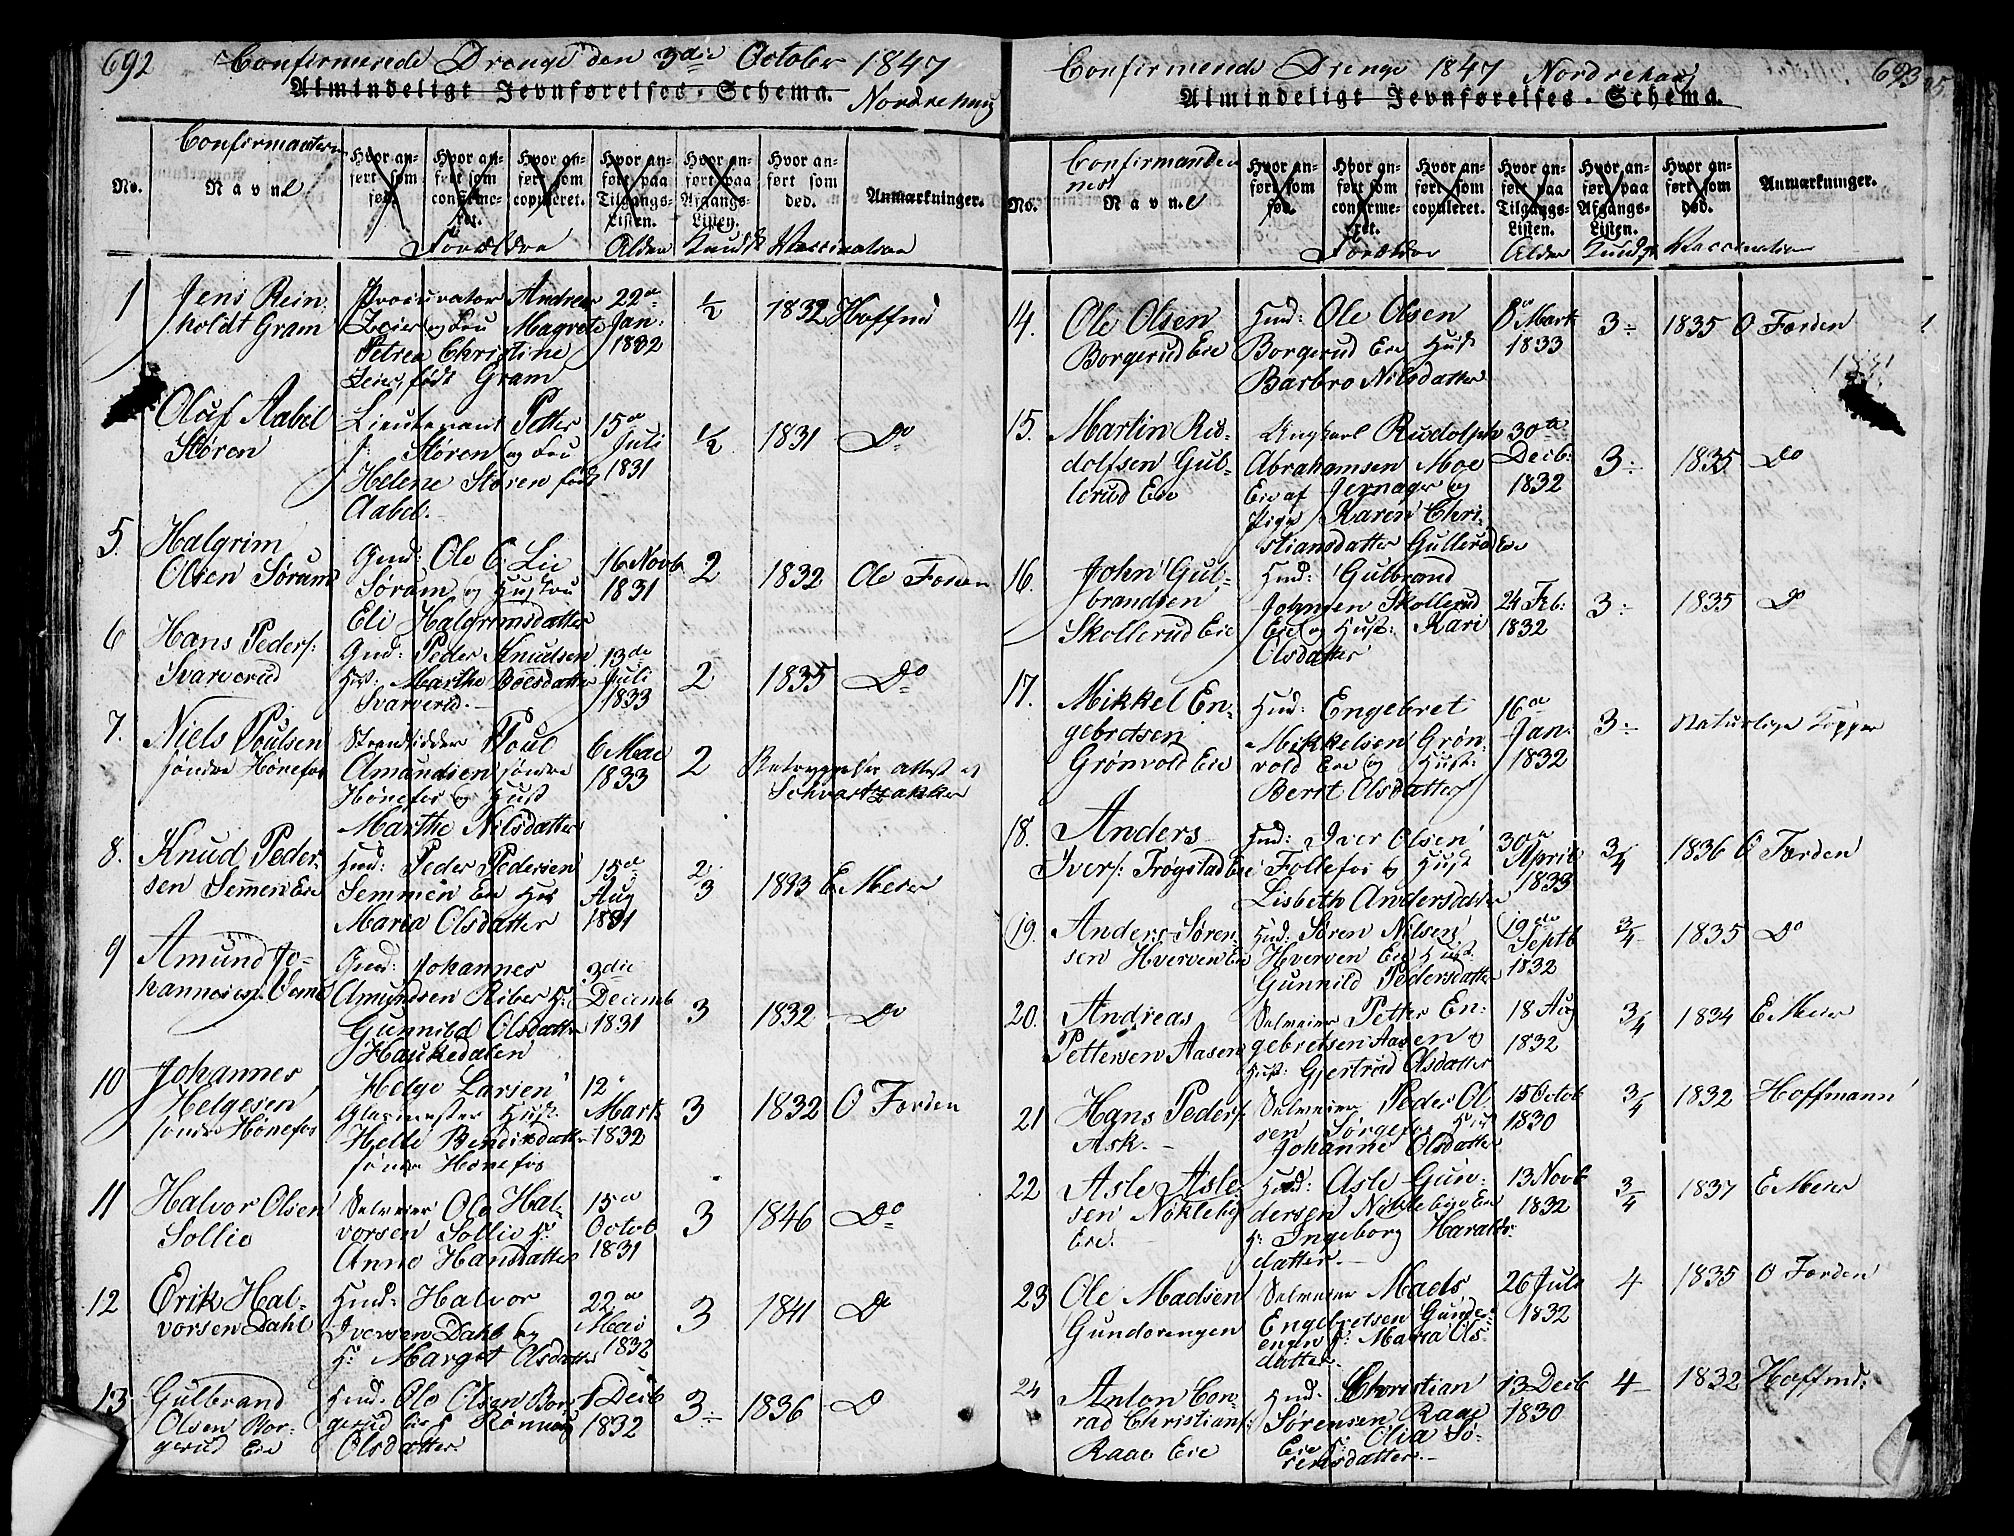 692 Confirmerede Drenge den 3die October 1847
Almindeligt Jevnførelses-Schema. Nordrehaug
No.
Confirmanternes
Navne
Hvor anført som fød.
Hvor anført som confirmeret.
Hvor anført som copuleret.
Hvor anført paa Tilgangs-Listen.
Hvor anført paa Afgangs-Listen.
Hvor anført som død.
Anmærkninger.
Forældre Alder Kundsk Vaccination
1 Jens Reinholdt Gram
Procurator Andreas
Leier og Fru Magrete
Petrea Christine
Leier, født Gram
22de Jan: 1832
1/2 1832 Hoffmd
Oluf Aabel
Støren
Lieutenant Petter
J. Støren og Fru
Helene Støren født
Aabel.
15de Juli 1831
1/2 1831 Do
5. Halgrim
Olsen Sørum
Gmd: Ole O. Lie
Sørum og Hustru
Eli Halgrimsdatter
16 Novb 1831
2 1832 Ole Forden
6 Hans Peders:
Svarverud
Gmd: Peder Knudsen
Hst: Marthe Boesdatter
Svarverud.
13de Juli 1833
2 1835 Do
7. Niels Poulsen
søndre Hønefos
Strandsidder Poul
Amundsen søndre
Hønefos og Hust
Marthe Nilsdatter
6 Mai 1833
2
8. Knud Pedersen
Semmen Eie
Hmd: Peder Pedersen
Semmen Eie Hus
Maria Olsdatter
15de Aug 1831
2/3 1833 E Meier
9 Amund Johannesen
Gmd: Johannes
Amundsen Riber H:
Gunnild Olsdatter
Haukedalen
3die Decemb 1831
3 1832 Do
10 Johannes
Helgesen
søndre Hønefos
Helge Larsen
Glasmester Hust:
Helle Bendixdatter
søndre Hønefos
12 Marts 1832
3 1832 O Forden
11 Halvor Olsen
Sollie
Selveier Ole Halvorsen
Sollie H:
Anne Hansdatter
15de Octob 1831
3 1846 Do
12 Erik Halvorsen
Dahl
Hmd: Halvor
Iversen Dahl og
H: Margot Olsdatter
22de Mai 1832
3 1841 Do
13 Gulbrand
Olsen Borgerud
Eie
Hmd. Ole Olsen Borgerud
Eie & Rønnaug
Olsdatter
1 Decb 1832
3÷ 1836 D
Confirmerede Drenge 1847 Nordrehaug 693
Almindeligt Jevnførelses-Schema.
No.
Confirmandernes
Navne
Hvor anført som fød.
Hvor anført som confirmeret.
Hvor anført som copuleret.
Hvor anført paa Tilgangs-Listen.
Hvor anført paa Afgangs-Listen.
Hvor anført som død.
Anmærkninger.
Forældre Alder Kundsk Vaccination
14. Ole Olsen
Borgerud Eie
Hmd: Ole Olsen
Borgerud Eie Hust
Barbro Nilsdatter
8de Marts 1833
3÷ 1835 O Forden
15. Martin Rudolfsen
Gullerud Eie
Ungkarl Rudolph
Abrahamsen Moe
Eie af Jernager og
Pige Karen Christiansdatter
Gullerud Eie
30te Decb: 1832
3÷ 1835 Do
16. John Gulbrandsen
Skollerud Eie
Hmd: Gulbrand
Johnsen Skollerud
Eie og Hust: Kari
Olsdatter
24 Feb: 1832
3÷ 1835 Do
17. Mikkel Engebretsen
Grønvold Eie
Hmd: Engebret
Mikkelsen Grønvold
Eie og Hust:
Berit Olsdatter
16de Jan: 1832
3÷ Naturlige Kopper
18. Anders
Ivers: Trøgstad Eie
Hmd: Iver Olsen
Follefos og Hust
Lisbeth Andersdatter
30te April 1833
3/4 1836 O Forden
19. Anders Sørensen
Hverven Eie
Hmd: Søren Nilsen
Hverven Eie Hust
Gunnild Pedersdatter
19de Septb 1832
3/4 1835 Do
20. Andreas
Pettersen Aasen
Selveier Petter Engebretsen
Aasen &
Hust: Gjertrud Olsdatter
18 Aug 1832
3/4 1834 E Meier
21 Hans Peders:
Ask.
Selveier Peder Olsen
Sørgefos Hust
Johanne Olsdatter
15 Octob 1830
3/4 1832 Hoffmann
22 Asle Aslesen
Nøkleby
Eie.
Hmd: Asle Gundersen
Nøkleby Eie
H: Ingeborg Haraldsdatter.
13 Novb 1832
3/4 1837 E Meier
23 Ole Madsen
Gundorengen
Selveier Mads
Engebretsen Gunderengen
H: Maria Olsdatter.
26 Juli 1832
4 1835 O Forden
24 Anton Conrad
Christians:
Raae Eie
Hmd. Christian
Sørensen Raae
Eie H: Olia Sørensdatter.
13 Decb 1830
4 1832 Hoffmd: